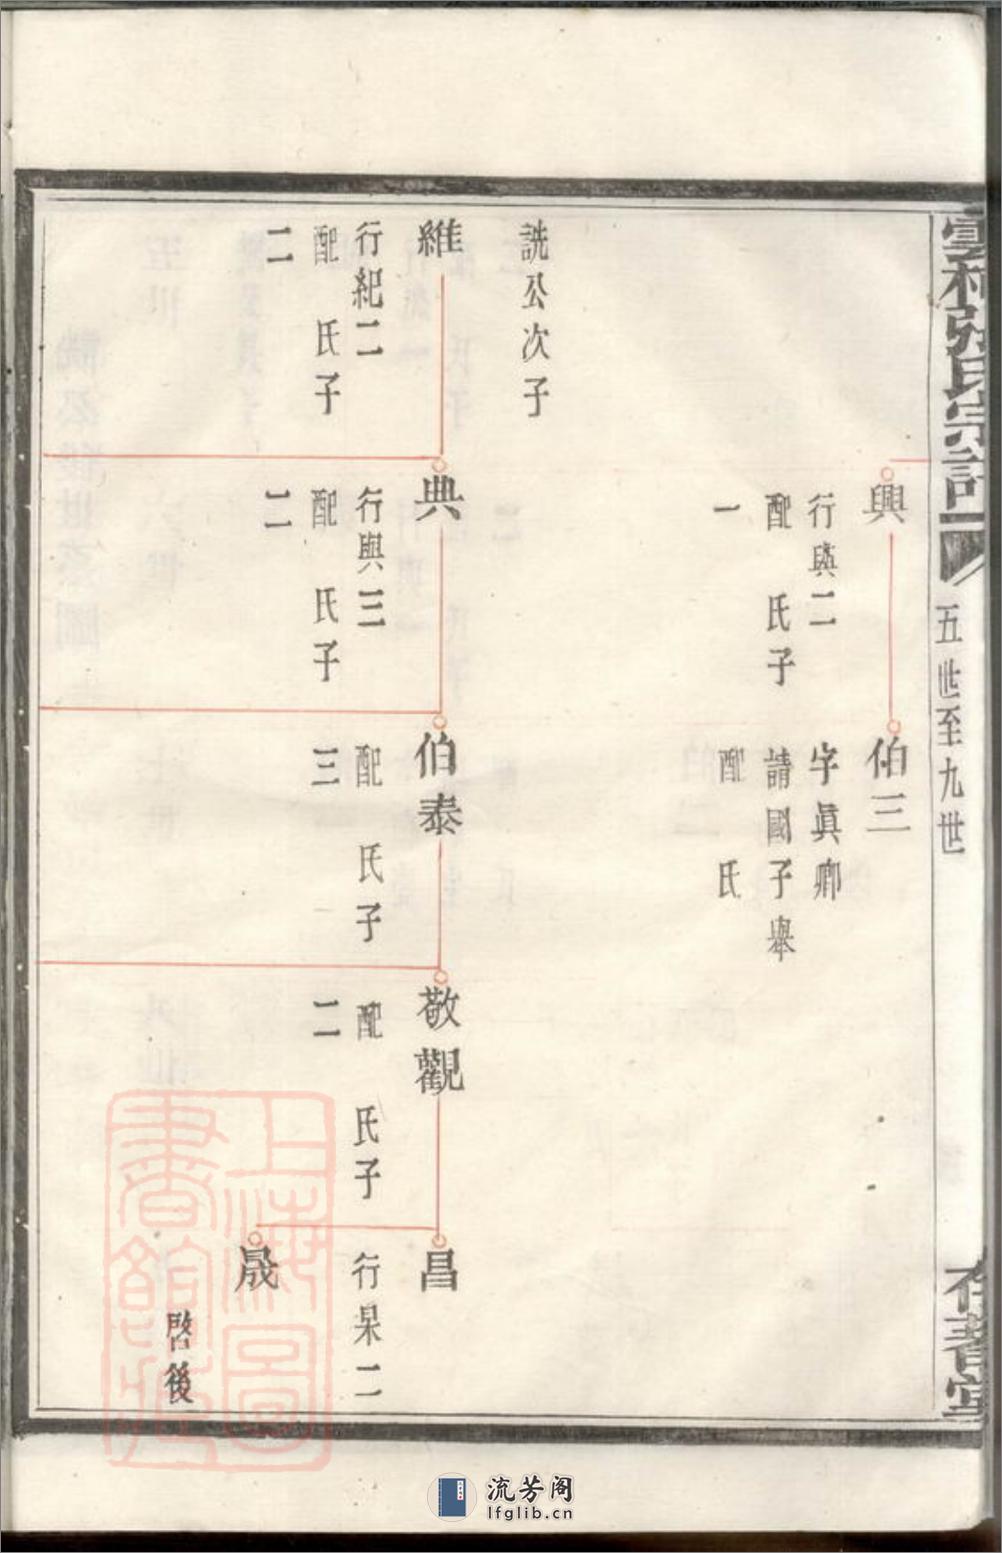 雲村張氏宗譜
五世至九世
存著堂
興
行與二
配 氏子
一
伯三
字眞卿
請國子舉
配 氏
詵公次子
維
行紀二
配 氏子
二
典
行與三
配 氏子
二
伯泰
配 氏子
三
敬觀
配 氏子
二
昌
行杲二
晟
啓後
上海圖
書館藏
流芳阁
lfglib.cn